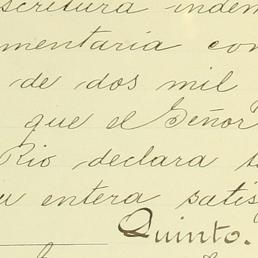 scritura indem
mentaria con
de dos mil
que el Señor
Rio declara
u entera satis
Quinto.